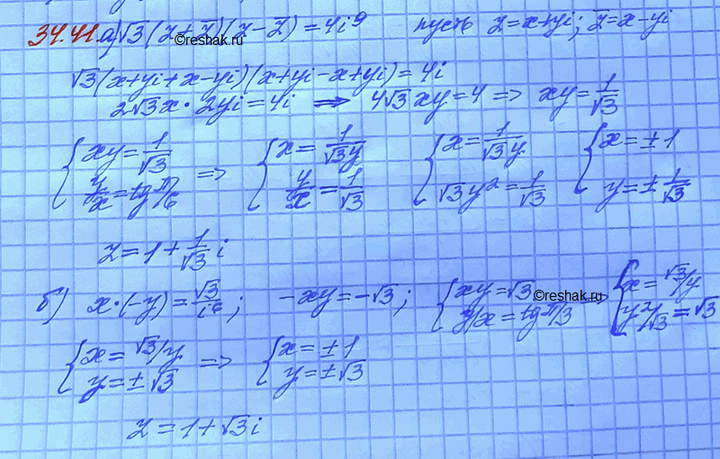 34.41.а) √3(z+z̅)(z−z̅)=4i⁹ пусть z=x+yi; z̅=x−yi
©reshak.ru
√3(x+yi+x−yi)(x+yi−x+yi)=4i
2√3x·2yi=4i => 4√3xy=4 => xy=1/√3
{xy=1/√3; y/x=tg π/6 => {x=1/(√3y); y/x=1/√3 {x=1/(√3y); √3y²=1/√3 {x=±1; y=±1/√3
z=1+1/√3 i
б) x·(−y)=√3/i⁶; −xy=−√3; {xy=√3; y/x=tg π/3 => {x=√3/y; y²/√3=√3
©reshak.ru
{x=√3/y; y=±√3 => {x=±1; y=±√3
z=1+√3i